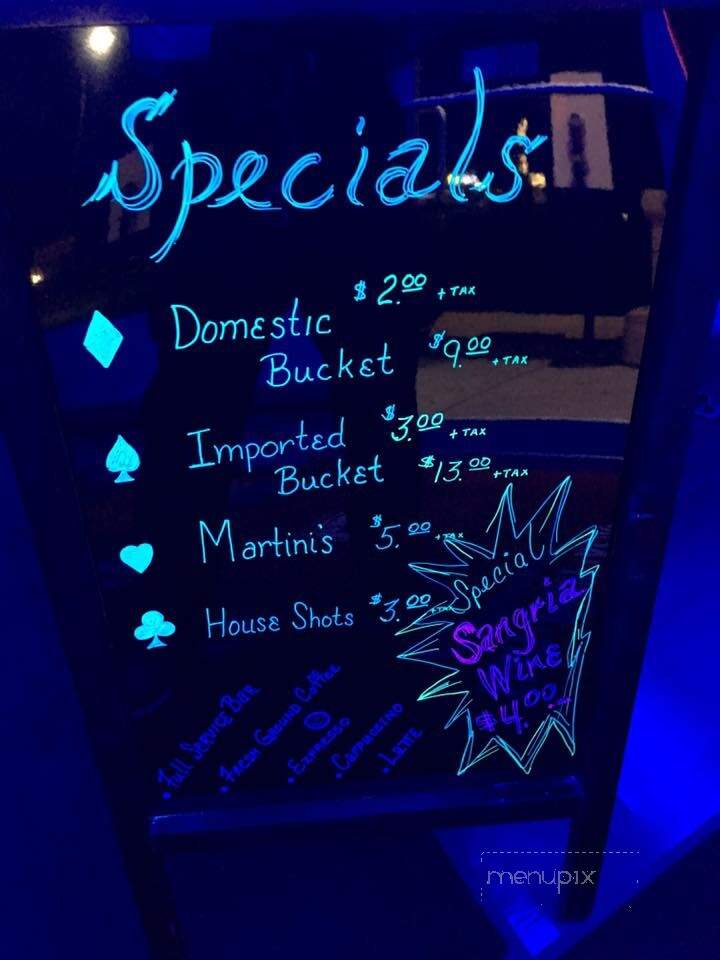 Specials
Domestic $2.00 + TAX
Bucket $9.00 + TAX
Imported $3.00 + TAX
Bucket $13.00 + TAX
Martini's $5.00 + TAX
House Shots $3.00 + TAX
Special
Sangria
Wine
$4.00
• Full Service Bar
• Fresh Ground Coffee
• Expresso
• Cappuccino
• Latte
menupix